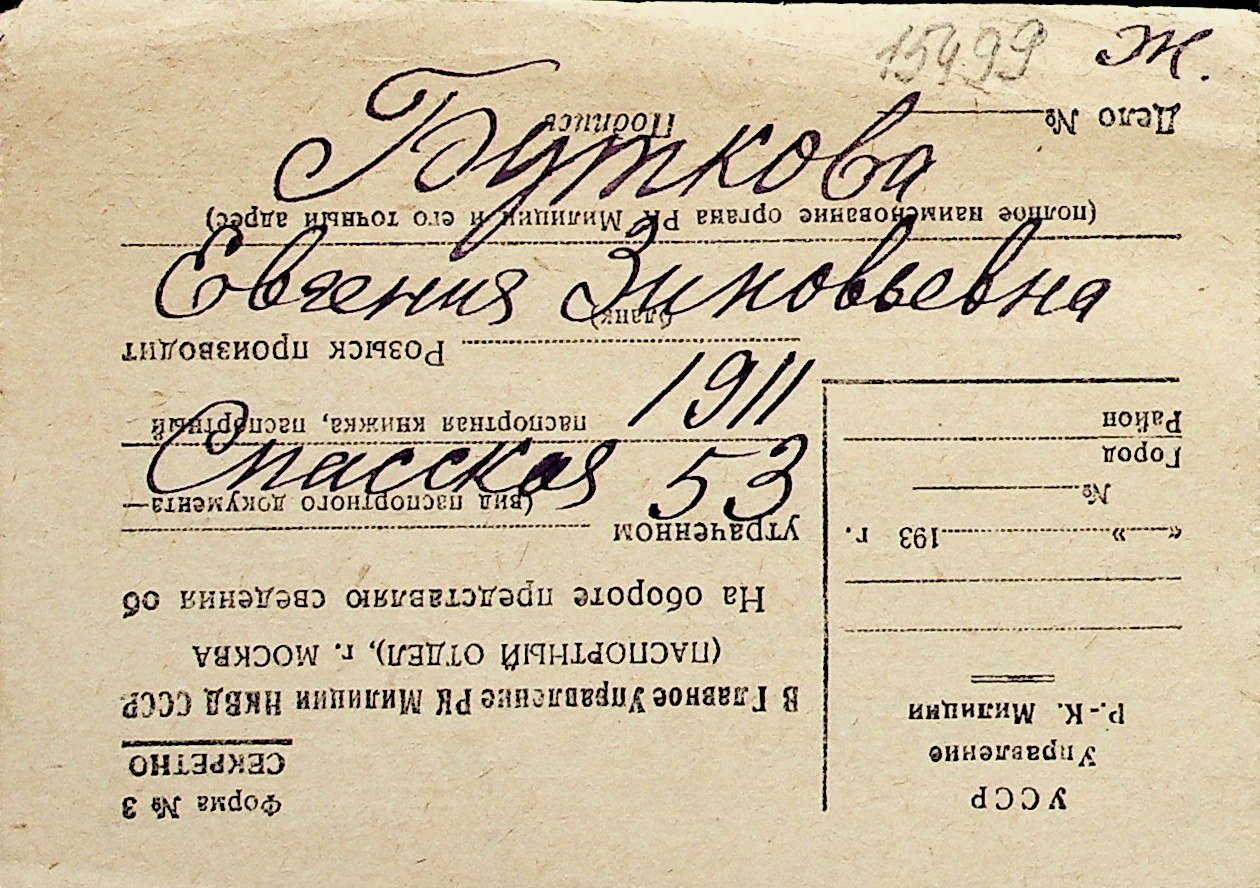 15499 Ж.
Буткова
Евгения Зиновьевна
1911
Спасская 53
УССР
Управление
Р.-К. Милиции
« » 193 г.
№
Город
Район
Форма № 3
СЕКРЕТНО
В Главное Управление РК Милиции НКВД СССР
(ПАСПОРТНЫЙ ОТДЕЛ), г. МОСКВА
На обороте представляю сведения об
утраченном
(вид паспортного документа—
паспортная книжка, паспортный
бланк)
Розыск производит
(полное наименование органа РК Милиции и его точный адрес)
Дело №
Подпись